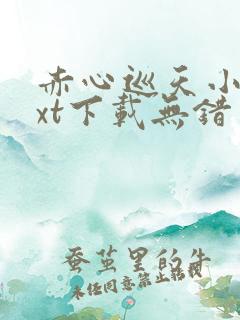 赤心巡天小
xt下載無錯
蚕茧里的牛
未经同意禁止转载